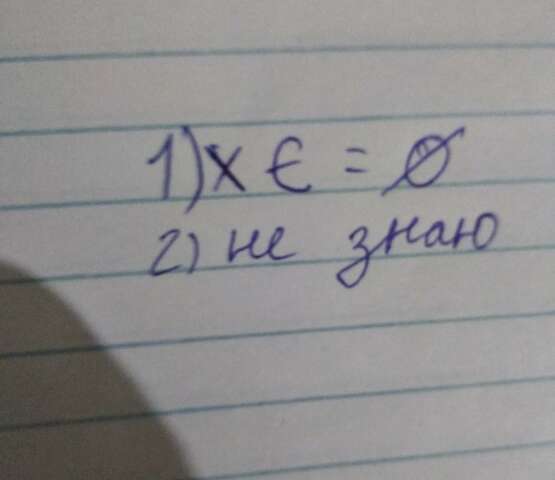 1) x ∈ = ∅
2) не знаю